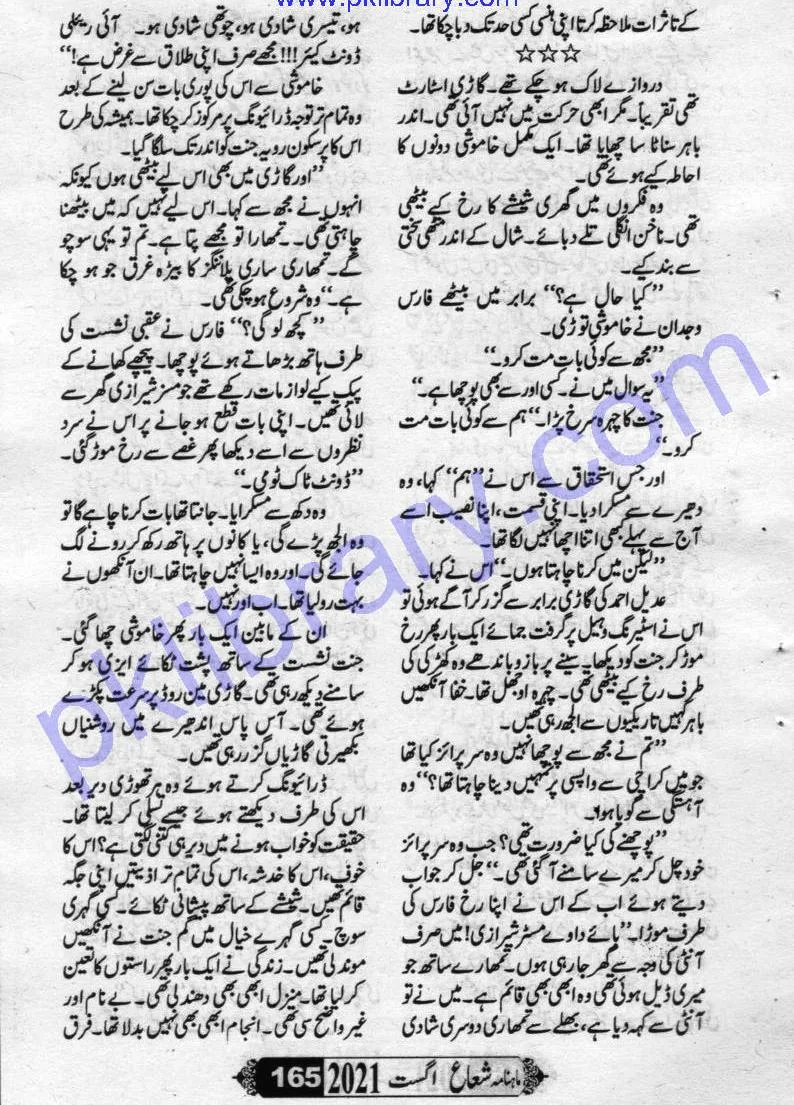 www.pklibrary.com
کے تاثرات ملاحظہ کرتا اپنی ہنسی کسی حد تک دبا چکا تھا۔
☆☆☆
دروازے لاک ہو چکے تھے۔ گاڑی اسٹارٹ
تھی تقریباً۔ مگر ابھی حرکت میں نہیں آئی تھی۔ اندر
باہر سناٹا سا چھایا تھا۔ ایک مکمل خاموشی دونوں کا
احاطہ کیے ہوئے تھی۔
وہ فکروں میں گھری شیشے کا رخ کیے بیٹھی
تھی۔ ناخن انگلی تلے دبائے۔ شال کے اندر مٹھی سختی
سے بند کیے۔
”کیا حال ہے؟“ برابر میں بیٹھے فارس
وجدان نے خاموشی توڑی۔
”مجھ سے کوئی بات مت کرو۔“
”یہ سوال میں نے۔ کسی اور سے بھی پوچھا ہے۔“
جنت کا چہرہ سرخ پڑا۔ ”ہم سے کوئی بات مت
کرو۔“
اور جس استحقاق سے اس نے ”ہم“ کہا، وہ
دھیرے سے مسکرا دیا۔ اپنی قسمت، اپنا نصیب اسے
آج سے پہلے کبھی اتنا اچھا نہیں لگا تھا۔
”لیکن میں کرنا چاہتا ہوں۔“ اس نے کہا۔
عدیل احمد کی گاڑی برابر سے گزر کر آگے ہوئی تو
اس نے اسٹیرنگ وہیل پر گرفت جمائے ایک بار پھر رخ
موڑ کر جنت کو دیکھا۔ سینے پر بازو باندھے وہ کھڑکی کی
طرف رخ کیے بیٹھی تھی۔ چہرہ اوجھل تھا۔ خفا آنکھیں
باہر کہیں تاریکیوں سے الجھ رہی تھیں۔
”تم نے مجھ سے پوچھا نہیں وہ سرپرائز کیا تھا
جو میں کراچی سے واپسی پر تمہیں دینا چاہتا تھا؟“ وہ
آہستگی سے گویا ہوا۔
”پوچھنے کی کیا ضرورت تھی؟ جب وہ سرپرائز
خود چل کر میرے سامنے آ گئی تھی۔“ جل کر جواب
دیتے ہوئے اب کے اس نے اپنا رخ فارس کی
طرف موڑا۔ ”بائے دا وے مسٹر شیرازی! میں صرف
آنٹی کی وجہ سے گھر جا رہی ہوں۔ تمہارے ساتھ جو
میری ڈیل ہوئی تھی وہ ابھی بھی قائم ہے۔ میں نے تو
آنٹی سے کہہ دیا ہے، بھلے سے تمہاری دوسری شادی
ہو، تیسری شادی ہو، چوتھی شادی ہو۔ آئی ریئلی
ڈونٹ کیئر!!! مجھے صرف اپنی طلاق سے غرض ہے!“
خاموشی سے اس کی پوری بات سن لینے کے بعد
وہ تمام تر توجہ ڈرائیونگ پر مرکوز کر چکا تھا۔ ہمیشہ کی طرح
اس کا پرسکون رویہ جنت کو اندر تک سلگا گیا۔
”اور گاڑی میں بھی اس لیے بیٹھی ہوں کیونکہ
انہوں نے مجھ سے کہا۔ اس لیے نہیں کہ میں بیٹھنا
چاہتی تھی۔۔ تمہارا تو مجھے پتا ہے۔ تم تو یہی سوچو
گے۔ تمہاری ساری پلاننگز کا بیڑہ غرق جو ہو چکا
ہے۔“ وہ شروع ہو چکی تھی۔
”کچھ لو گی؟“ فارس نے عقبی نشست کی
طرف ہاتھ بڑھاتے ہوئے پوچھا۔ پیچھے کھانے کے
پیک کیے لوازمات رکھے تھے جو مسز شیرازی گھر سے
لائی تھیں۔ اپنی بات قطع ہو جانے پر اس نے سرد
نظروں سے اسے دیکھا پھر غصے سے رخ موڑ گئی۔
”ڈونٹ ٹاک ٹو می۔“
وہ دکھ سے مسکرایا۔ جانتا تھا بات کرنا چاہے گا تو
وہ الجھ پڑے گی، یا کانوں پر ہاتھ رکھ کر رونے لگ
جائے گی۔ اور وہ ایسا نہیں چاہتا تھا۔ ان آنکھوں نے
بہت رو لیا تھا۔ اب اور نہیں۔
ان کے مابین ایک بار پھر خاموشی چھا گئی۔
جنت نشست کے ساتھ پشت ٹکائے ایزی ہو کر
سامنے دیکھ رہی تھی۔ گاڑی مین روڈ پر سرعت پکڑے
ہوئے تھی۔ آس پاس اندھیرے میں روشنیاں
بکھیرتی گاڑیاں گزر رہی تھیں۔
ڈرائیونگ کرتے ہوئے وہ ہر تھوڑی دیر بعد
اس کی طرف دیکھتے ہوئے جیسے تسلی کر لیتا تھا۔
حقیقت کو خواب ہونے میں دیر ہی کتنی لگتی ہے؟ اس کا
خوف، اس کا خدشہ، اس کی تمام تر اذیتیں اپنی جگہ
قائم تھیں۔ شیشے کے ساتھ پیشانی ٹکائے۔ کسی گہری
سوچ۔ کسی گہرے خیال میں گم جنت نے آنکھیں
موند لی تھیں۔ زندگی نے ایک بار پھر راستوں کا تعین
کر لیا تھا۔ منزل ابھی بھی دھندلی تھی۔ بے نام اور
غیر واضح سی تھی۔ انجام ابھی بھی نہیں بدلا تھا۔ فرق
pklibrary.com
ماہنامہ شعاع اگست 2021 165